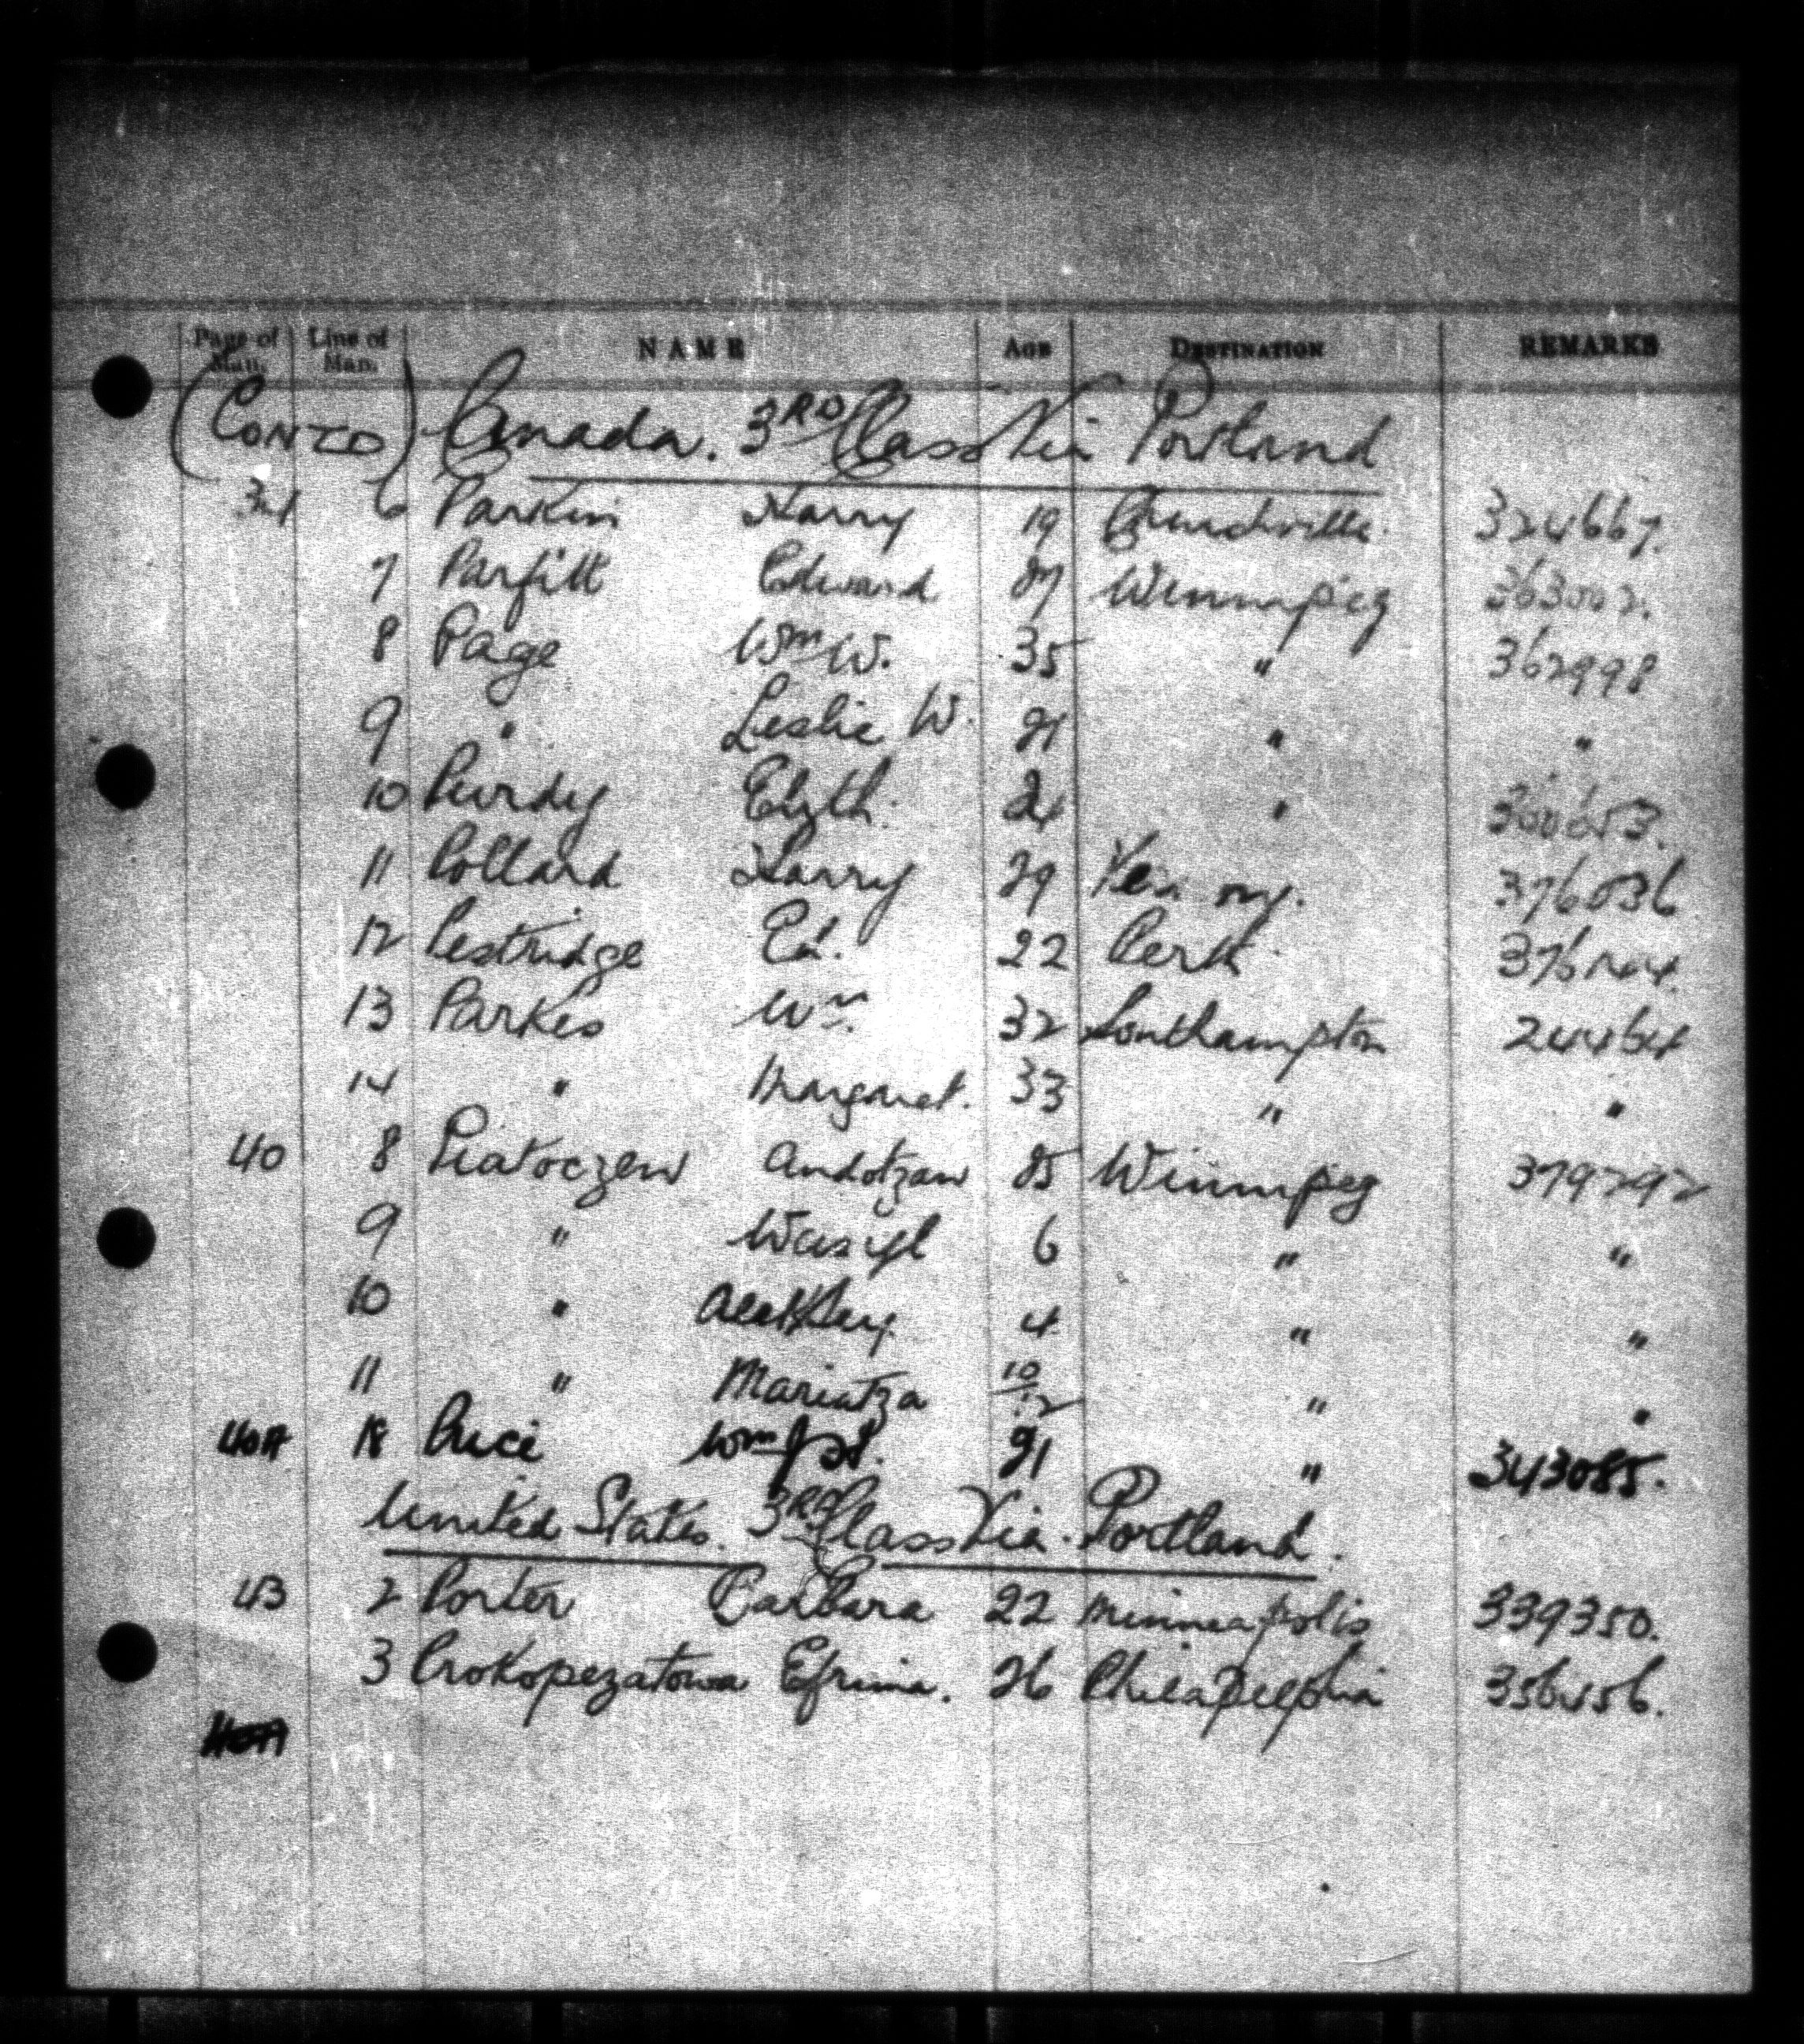 Page of Man. Line of Man. NAME AGE DESTINATION REMARKS
(CONTD) Canada. 3RD Class Via Portland
34 6 Parkin Harry 19 Churchville. 324667.
7 Parfitt Edward 27 Winnipeg 363002.
8 Page Wm W. 35 " 362998
9 " Leslie W. 21 " "
10 Purdy Elzth. 24 "
11 Pollard Harry 29 376036
12 Pestridge Ed. 22 Perth
13 Parkes Wm. 32 Southampton
14 " Margaret. 33 " "
40 8 Piatoczew Andotzaw 25 Winnipeg 379292
9 " Wasyl 6 " "
10 " 4 " "
11 " Mariatza 10/12 " "
40A 18 Price Wm 21 " 343085.
United States. 3RD Class Via. Portland.
43 2 Porter Barbara 22 Minneapolis 339350.
3 Prokopezatowa Efrima. 26 Philadelphia 356456.
40A